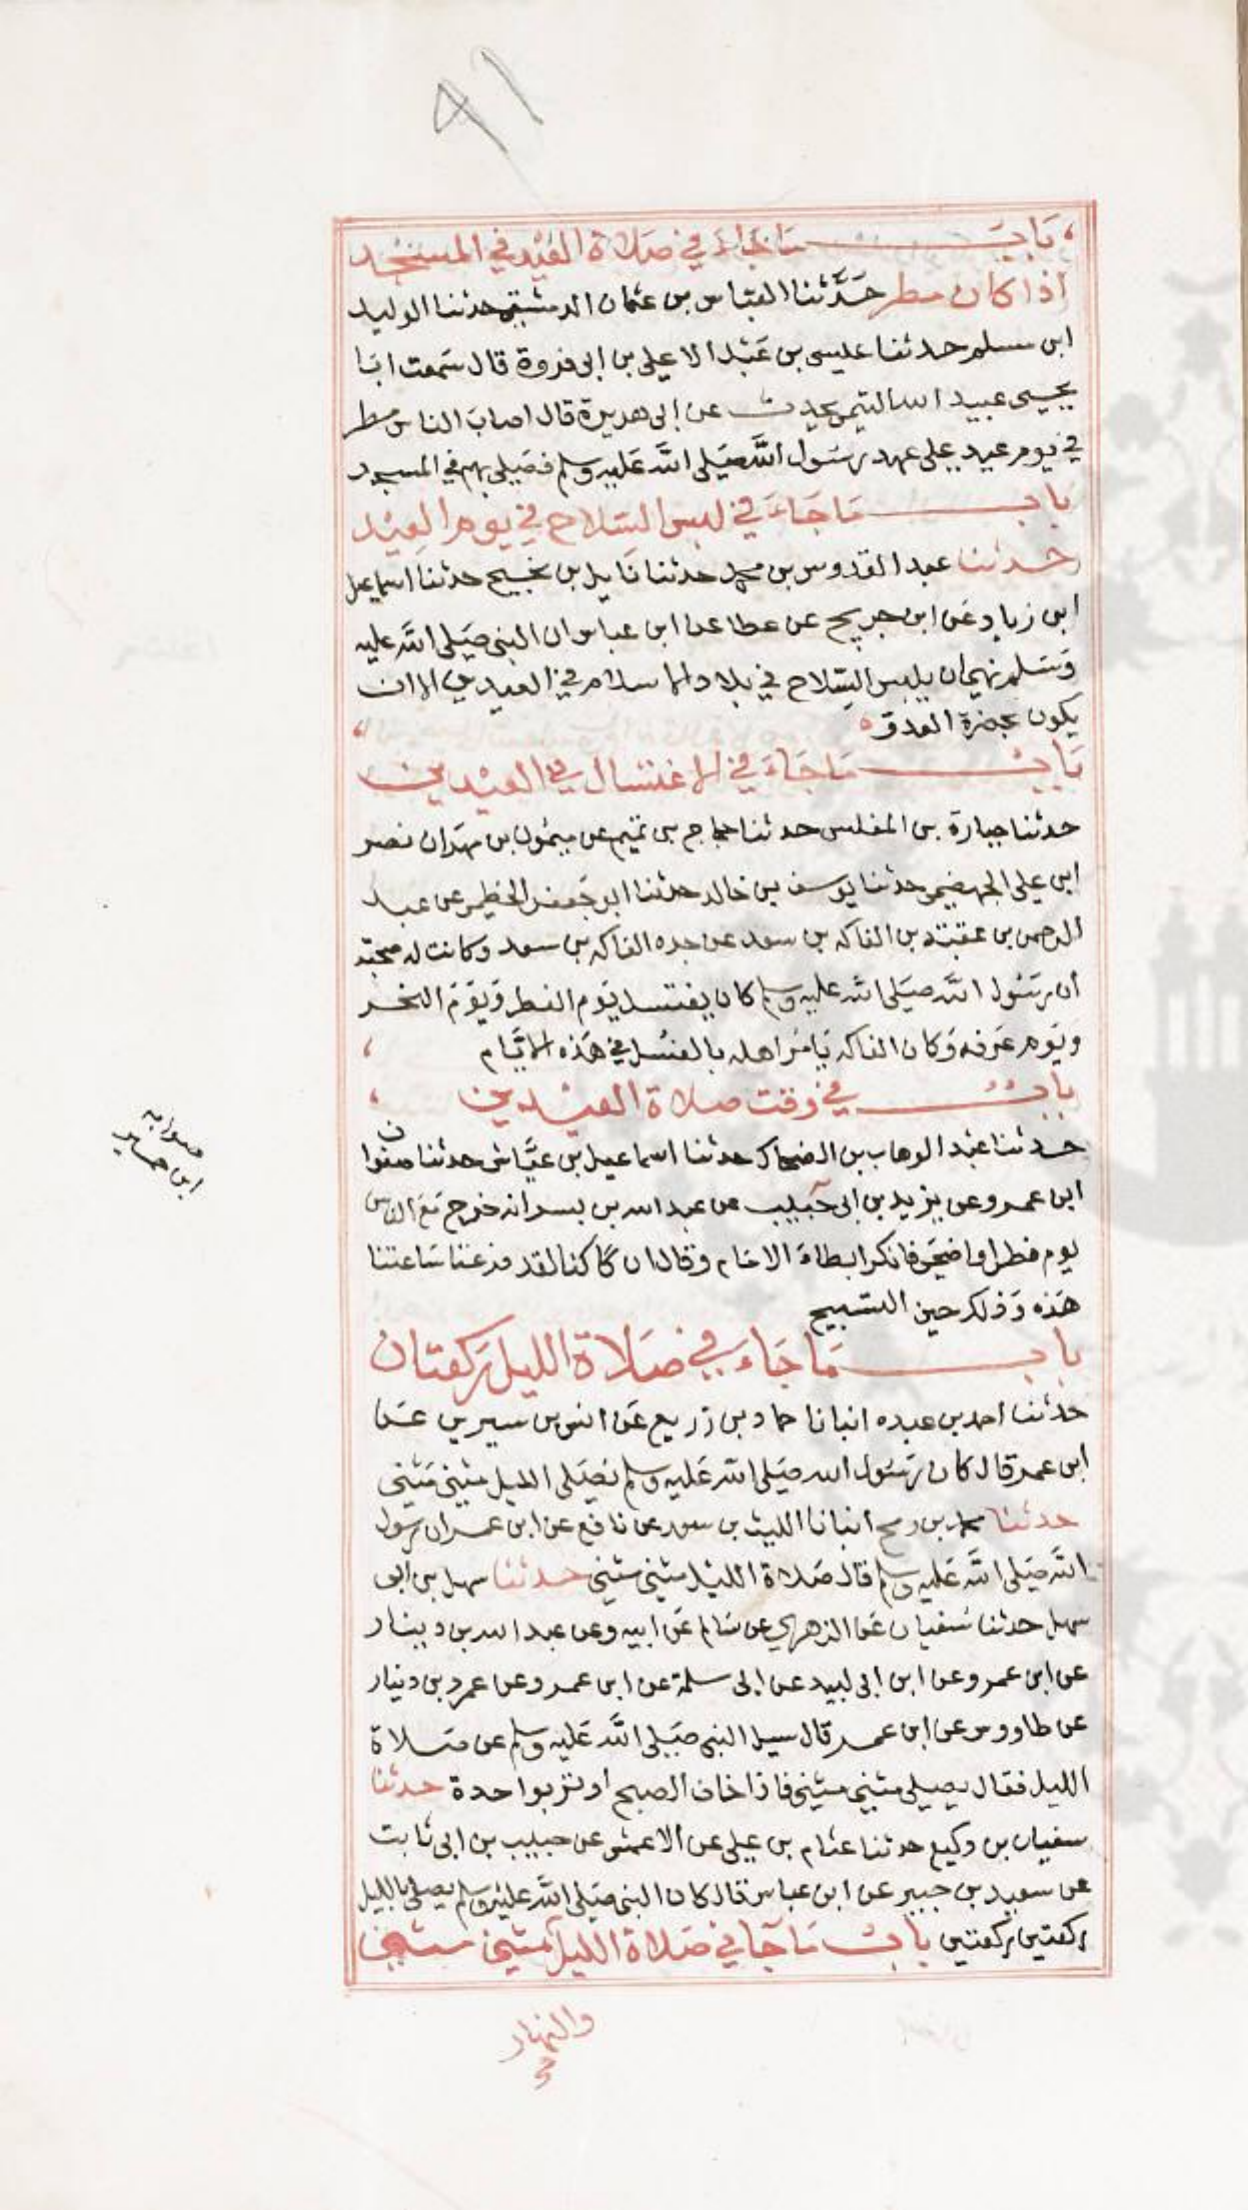 ٩١
باب ما جاء في صلاة العيد في المسجد
اذا كان مطر حدثنا العباس بن عثمان الدمشقي حدثنا الوليد
ابن مسلم حدثنا عيسى بن عبد الاعلى بن ابى فروة قال سمعت ابا
يحيى عبيد الله التيمي يحدث عن ابى هريرة قال اصاب الناس مطر
في يوم عيد على عهد رسول الله صلى الله عليه وسلم فصلى بهم في المسجد
باب ما جاء في لبس السلاح في يوم العيد
حدثنا عبد القدوس بن محمد حدثنا نايل بن نجيح حدثنا اسماعيل
ابن زياد عن ابن جريج عن عطا عن ابن عباس ان النبي صلى الله عليه
وسلم نهى ان يلبس السلاح في بلاد الاسلام في العيدين الا ان
يكون بحضرة العدو
باب ما جاء في الاغتسال في العيدين
حدثنا جبارة بن المغلس حدثنا حجاج بن تميم عن ميمون بن مهران نصر
ابن على الجهضمي حدثنا يوسف بن خالد حدثنا ابو جعفر الخطمي عن عبد
الرحمن بن عقبة بن الفاكه بن سعد عن جده الفاكه بن سعد وكانت له صحبة
ان رسول الله صلى الله عليه وسلم كان يغتسل يوم الفطر ويوم النحر
ويوم عرفه وكان الفاكه يامر اهله بالغسل في هذه الايام
باب في وقت صلاة العيدين
حدثنا عبد الوهاب بن الضحاك حدثنا اسماعيل بن عياش حدثنا صفوان
ابن عمرو عن يزيد بن ابى حبيب عن عبد الله بن بسر انه خرج مع الناس
يوم فطر او اضحى فانكر ابطاء الامام وقال ان كا كنا لقد فرغنا ساعتنا
هذه وذلك حين التسبيح
صوابه
ابن خمير
باب ما جاء في صلاة الليل ركعتان
حدثنا احمد بن عبده انبانا حماد بن زريع عن انس بن سيرين عن
ابن عمر قال كان رسول الله صلى الله عليه وسلم يصلى الليل مثنى مثنى
حدثنا محمد بن رمح انبانا الليث بن سعد عن نافع عن ابن عمر ان رسول
الله صلى الله عليه وسلم قال صلاة الليل مثنى مثنى حدثنا سهل بن ابى
سهل حدثنا سفيان عن الزهري عن سالم عن ابيه وعن عبد الله بن دينار
عن ابن عمر وعن ابن ابى لبيد عن ابى سلمة عن ابن عمر وعن عمرو بن دينار
عن طاووس عن ابن عمر قال سيل النبي صلى الله عليه وسلم عن صلاة
الليل فقال يصلى مثنى مثنى فاذا خاف الصبح اوتر بواحدة حدثنا
سفيان بن وكيع حدثنا عثام بن على عن الاعمش عن حبيب بن ابى ثابت
عن سعيد بن جبير عن ابن عباس قال كان النبي صلى الله عليه وسلم يصلى بالليل
ركعتين ركعتين باب ما جا في صلاة الليل مثنى مثنى
والنهار